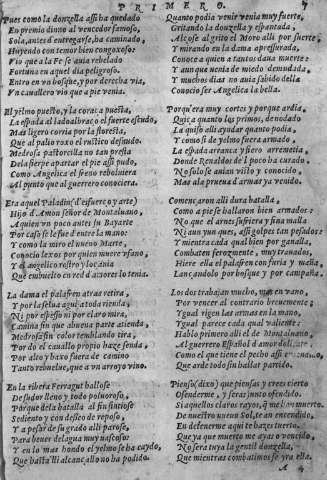 PRIMERO. 7
Pues como la donzella assi ha quedado
En premio dino al vencedor famoso,
Sola, antes d'entregarse, ha caminado
Huyendo con temor bien congoxoso:
Vio que a la Fe se auia rebelado
Fortuna en aquel dia peligroso.
Entro en vn bosque, y por derecha via,
Vn cauallero vio que a pie venia.
El yelmo puesto, y la coraça puesta,
La espada al lado al braço el fuerte escudo,
Mas ligero corria por la floresta,
Que al palio roxo el rustico desnudo.
Medrosa pastorcilla no tan presta
Dela sierpe apartar el pie assi pudo,
Como Angelica el freno reboluiera
Al punto que al guerrero conociera.
Era aquel Paladin (d'esfuerço y arte)
Hijo d'Amon señor de Montaluano,
A quien vn poco antes su Bayarte
Por caso se le fue d'entre la mano:
Y como la miro el nueuo Marte,
Conocio lexos por quien muere vfano,
Y el angelico rostro y loçania
Que embuelto en red d'amores lo tenia.
La dama el palafren atras retira,
Y por la selua aguija toda rienda,
Ni por espesso ni por claro mira,
Camina sin que abuena parte atienda,
Medrosa sin color temblando tira,
Por do el cauallo propio haze senda,
Por alto y baxo fuera de camino
Tanto rebuelue, que a vn arroyo vino.
En la ribera Ferragut hallose
De sudor lleno y todo poluoroso,
Porque dela batalla assi sintiose
Sediento y con desseo de reposo,
Y a pesar de su grado alli parose,
Para beuer del agua muy ansioso:
Y en lo mas hondo el yelmo se ha caydo,
Que hasta'lli alcançallo no ha podido.
Quanto podia venir venia muy fuerte,
Gritando la donzella y espantada,
Alçose al grito el Moro alli por suerte,
Y mirando en la dama apressurada,
Conoce a quien a tantos daua muerte
Y aunque uenia de miedo demudada,
Y muchos dias no auia sabido della
Conocio ser Angelica la bella.
Porqu'era muy cortes y porque ardia,
Quiça quanto los primos, de nodado
La quiso alli ayudar quanto podia,
Y como si de yelmo fuera armado,
La espada arranca y fiero arremetia,
Donde Renaldos de'l poco ha curado,
No solo se auian visto y conocido,
Mas ala prueua d'armas ya venido.
Començaron alli dura batalla,
Como a pie se hallaron bien armados:
No que el arnes sufriera y fina malla
Ni aun yunques, assi golpes tan pesados:
Y mientra cada qual bien por ganalla,
Combaten feroxmente, muy trauados,
Hiere ella el palafren con furia y maña,
Lançandolo por bosque y por campaña.
Los dos trabajan mucho, mas en vano,
Por vencer al contrario breuemente;
Ygual rigen las armas en la mano,
Ygual parece cada qual valiente:
Hablo primero alli el de Montaluano,
Al guerrero Español d'amor doliente,
Como el que tiene el pecho assi encendido,
Que arde todo sin hallar partido.
Piensas (dixo) que piensas y crees cierto
Ofenderme, y seras junto ofendido.
Si aquellos claros rayos, q'me han muerto,
De nuestro nueuo Sol, te an encendido,
En detenerme aqui te hazes tuerto.
Que ya que muerto me ayas o vencido,
No sera tuya la gentil donzella,
Que mientras combatimos se yra ella.
A 4